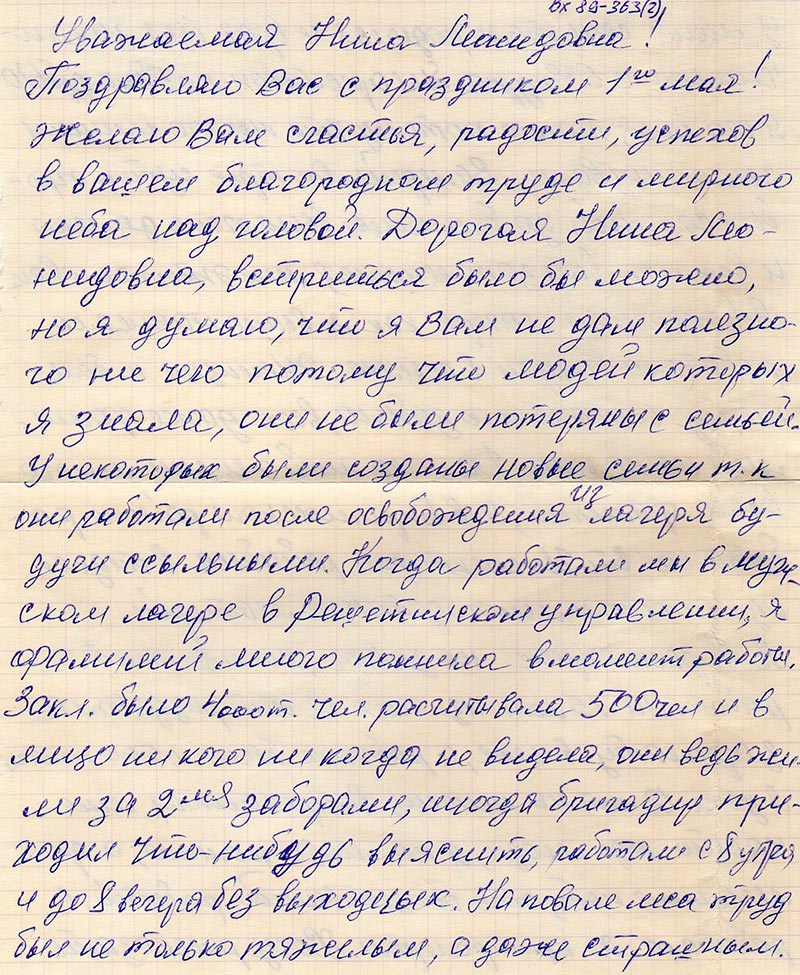 Вх 89-363(2)
Уважаемая Нина Леонидовна!
Поздравляю Вас с праздником 1го мая!
Желаю Вам счастья, радости, успехов
в вашем благородном труде и мирного
неба над головой. Дорогая Нина Лео-
нидовна, встретиться было бы можно,
но я думаю, что я Вам не дам полезно-
го ни чего потому что людей которых
я знала, они не были потеряны с семьей.
У некоторых были созданы новые семьи т.к
они работали после освобождения из лагеря бу-
дучи ссыльными. Когда работали мы в муж-
ском лагере в Решетинском управлении, я
фамилий много помнила в момент работы.
Закл. было 4000т. чел. расчитывала 500 чел и в
лицо ни кого ни когда не видела, они ведь жи-
ли за 2мя заборами, иногда бригадир при-
ходил что-нибудь выяснить, работали с 8 утра
и до 8 вечера без выходных. На повале леса труд
был не только тяжелым, а даже страшным.